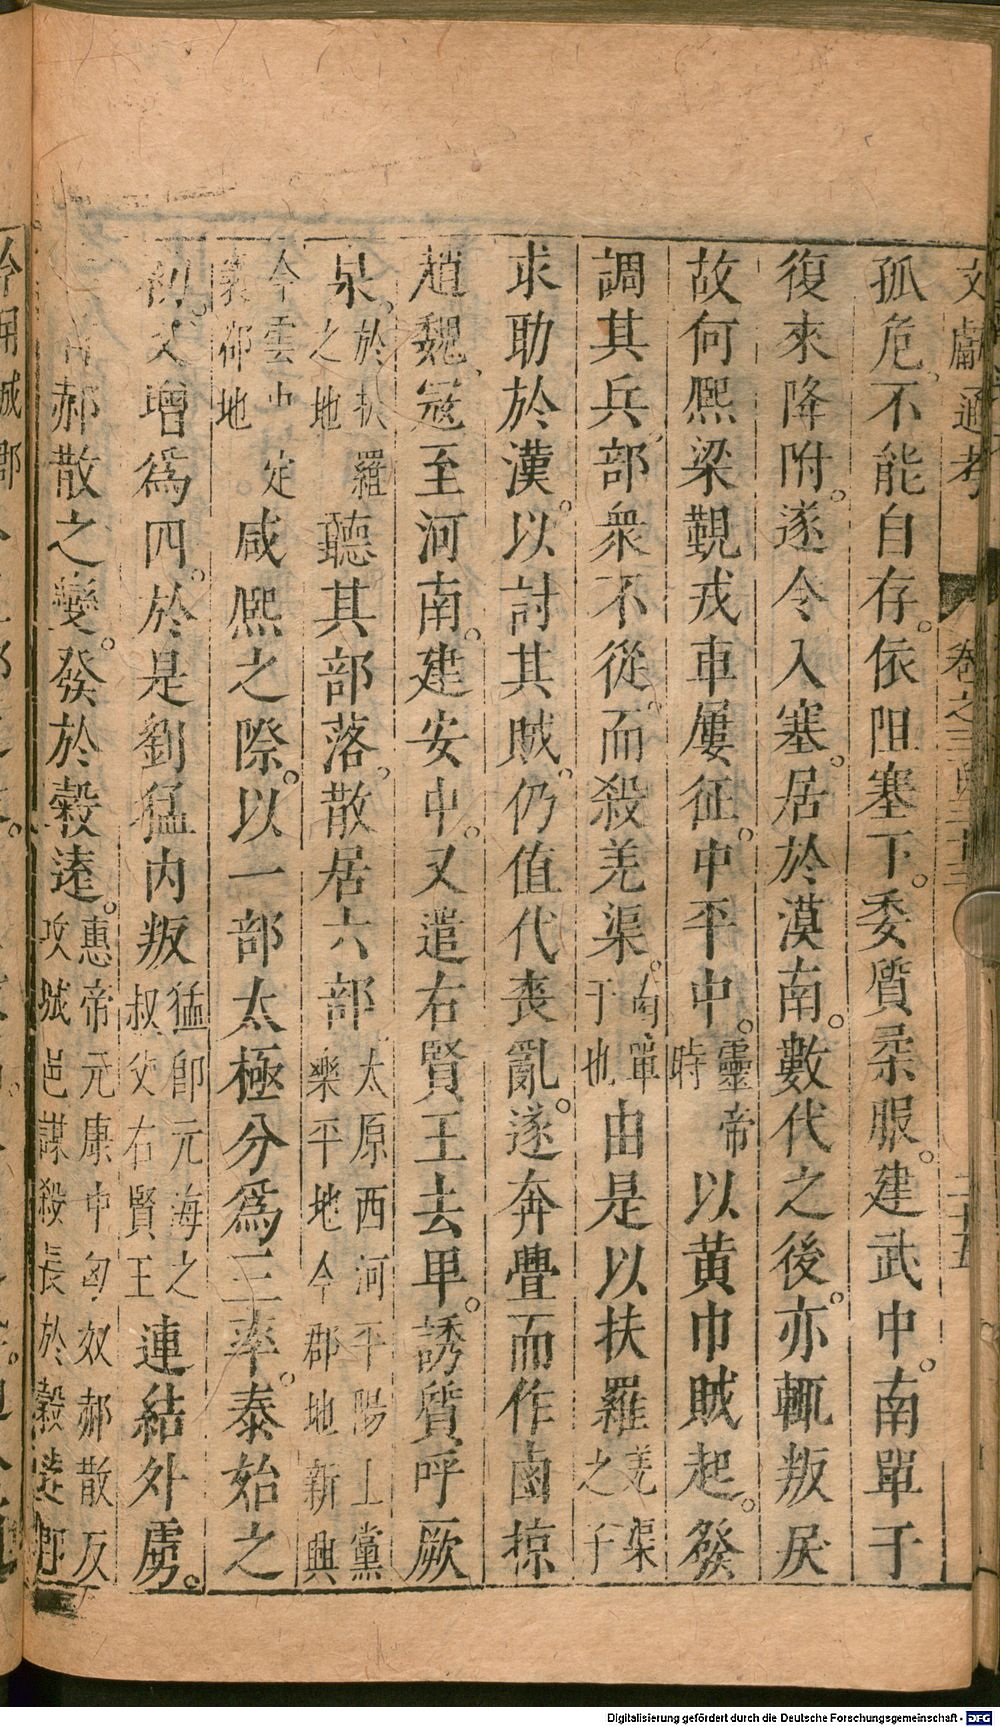 文獻通考 卷之三百四十三 二十五
孤危不能自存。依阻塞下。委質柔服。建武中。南單于
復來降附。遂令入塞。居於漠南。數代之後。亦輒叛戾
故何熙梁覲戎車屢征。中平中。靈帝時以黃巾賊起。發
調其兵、部衆不從。而殺羌渠。南單于也由是以扶羅羌渠之子
求助於漢。以討其賊。仍值代喪亂。遂奔疊而作鹵掠
趙魏、寇至河南。建安中。又遣右賢王去卑。誘質呼厥
泉。於扶羅之地聽其部落。散居六部太原西河平陽上黨樂平地今郡地新興
今雲中定襄郡地咸熙之際。以一部太極分爲三率。泰始之
初。又增爲四。於是劉猛內叛猛卽元海之叔父右賢王連結外虜。
郝散之變。發於榖遠。惠帝元康中匈奴郝散反攻城邑謀殺長於榖遠
Digitalisierung gefördert durch die Deutsche Forschungsgemeinschaft - DFG